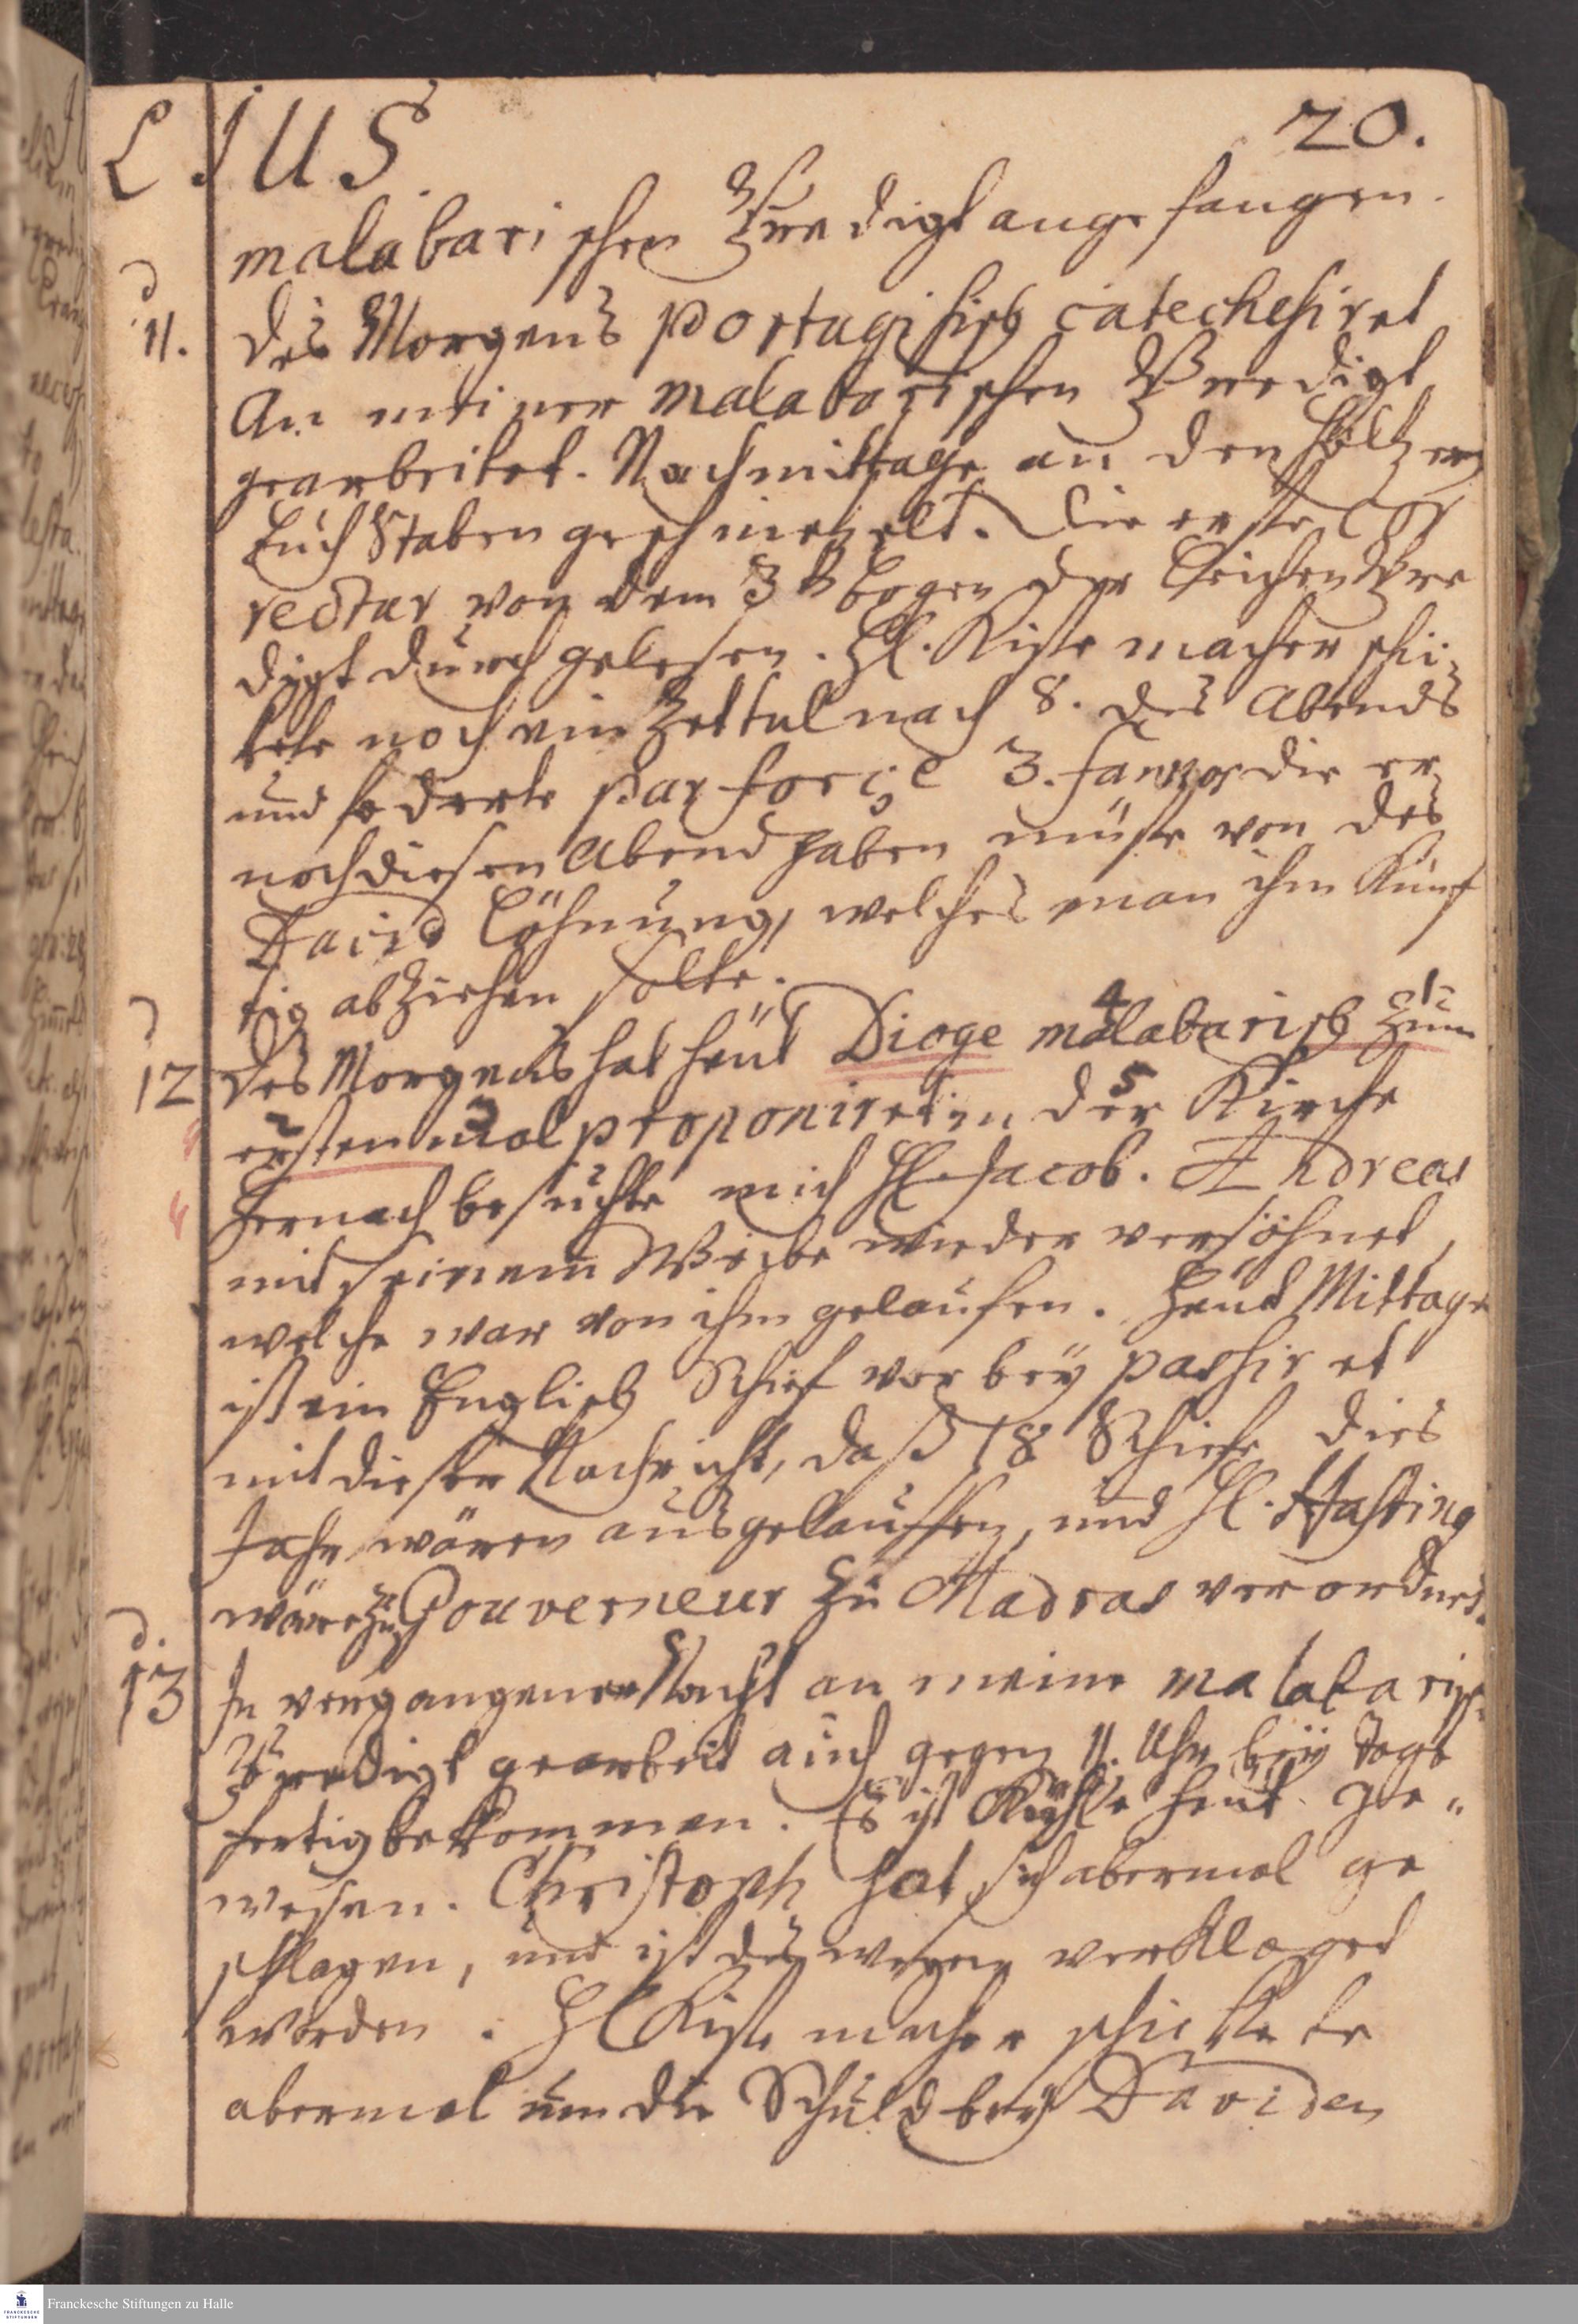 LIUS. 20.
malabarischen Predigt angefangen.
d
11. Des Morgens portugisisch catechesiret
An meiner malabarischen Predigt
gearbeitet. Nachmittage an den höltzern
buchstaben geschnitzelt. Die erste Cor
rectur von dem 3t bogen der Leichen Pre
digt durch gelesen. H. Kistemacher schi-
kete noch ein Zettul nach 8. des Abends
und foderte par force 3. fanos die er
noch diesen Abend haben müste von des
David Löhnung, welches man ihm künf
tig abziehen solte.
d
12 Des Morgens hat heut Dioge malabarisch zum
ersten mal proponiret in der Kirche
hernach besuchte mich H. Jacob. Andreas
mit seinem Weibe wieder versöhnet,
welche war von ihm gelaufen. Heut Mittage
ist ein Englisch Schief vorbey passiret
mit dieser Nachricht, daß 18 Schiefe dies
Jahr wären ausgelauffen, und H. Hasting
wäre zu Gouverneur zu Madras verordnet.
d.
13 In vergangener Nacht an meine malabarisch
Predigt gearbeit auch gegen 11. Uhr bey Tage
fertig bekommen. Es ist Kühle heut ge-
wesen. Christoph hat sich abermal ge
schlagen, und ist deswegen verklaget
worden. H Kistemacher schickete
abermal um die Schuld bey Daviden
Franckesche Stiftungen zu Halle